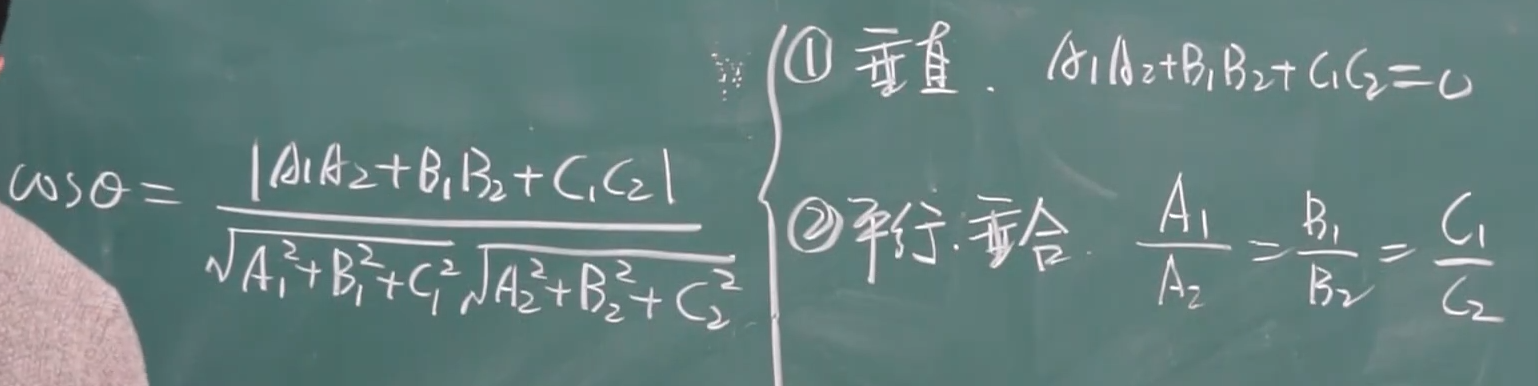 cosθ = |A₁A₂+B₁B₂+C₁C₂| / √A₁²+B₁²+C₁² √A₂²+B₂²+C₂²
① 垂直. A₁A₂+B₁B₂+C₁C₂=0
② 平行.重合. A₁/A₂ = B₁/B₂ = C₁/C₂